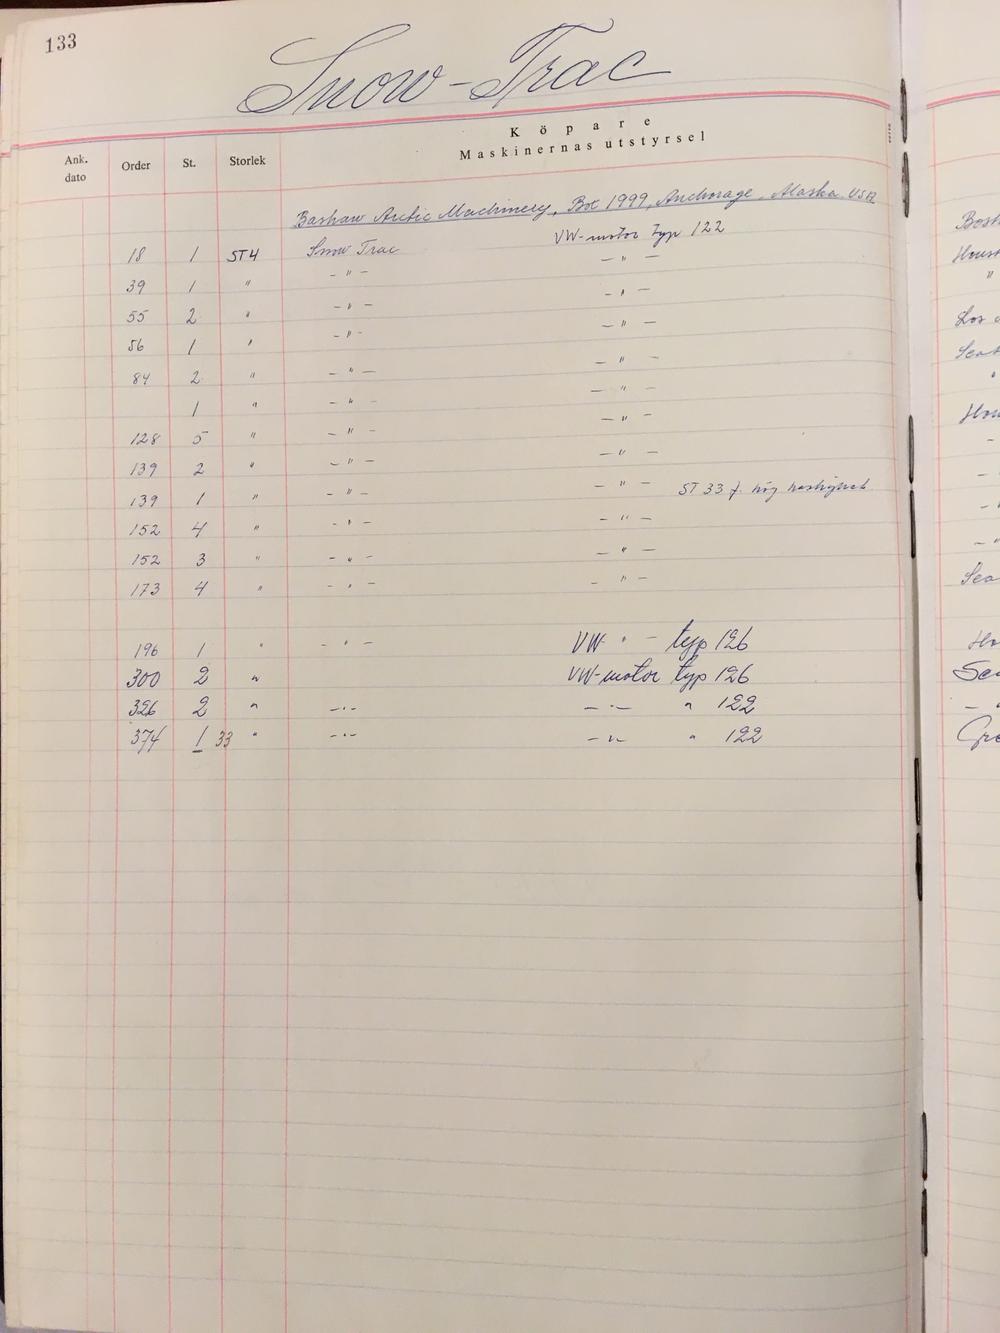 133
Snow-Trac
Köpare
Maskinernas utstyrsel
Ank. dato Order St. Storlek
Bashaw Arctic Machinery, Box 1999, Anchorage, Alaska USA
18 1 ST4 Snow Trac VW-motor typ 122
39 1 " - " - - " -
55 2 " - " - - " -
56 1 " - " - - " -
84 2 " - " - - " -
1 " - " - - " -
128 5 " - " - - " -
139 2 " - " - - " -
139 1 " - " - - " - ST 33 f. hög hastighet
152 4 " - " - - " -
152 3 " - " - - " -
173 4 " - " - - " -
196 1 " - " - VW " - typ 126
300 2 " VW-motor typ 126
326 2 " - " - - " - " 122
374 1 33 " - " - - " - " 122
Los